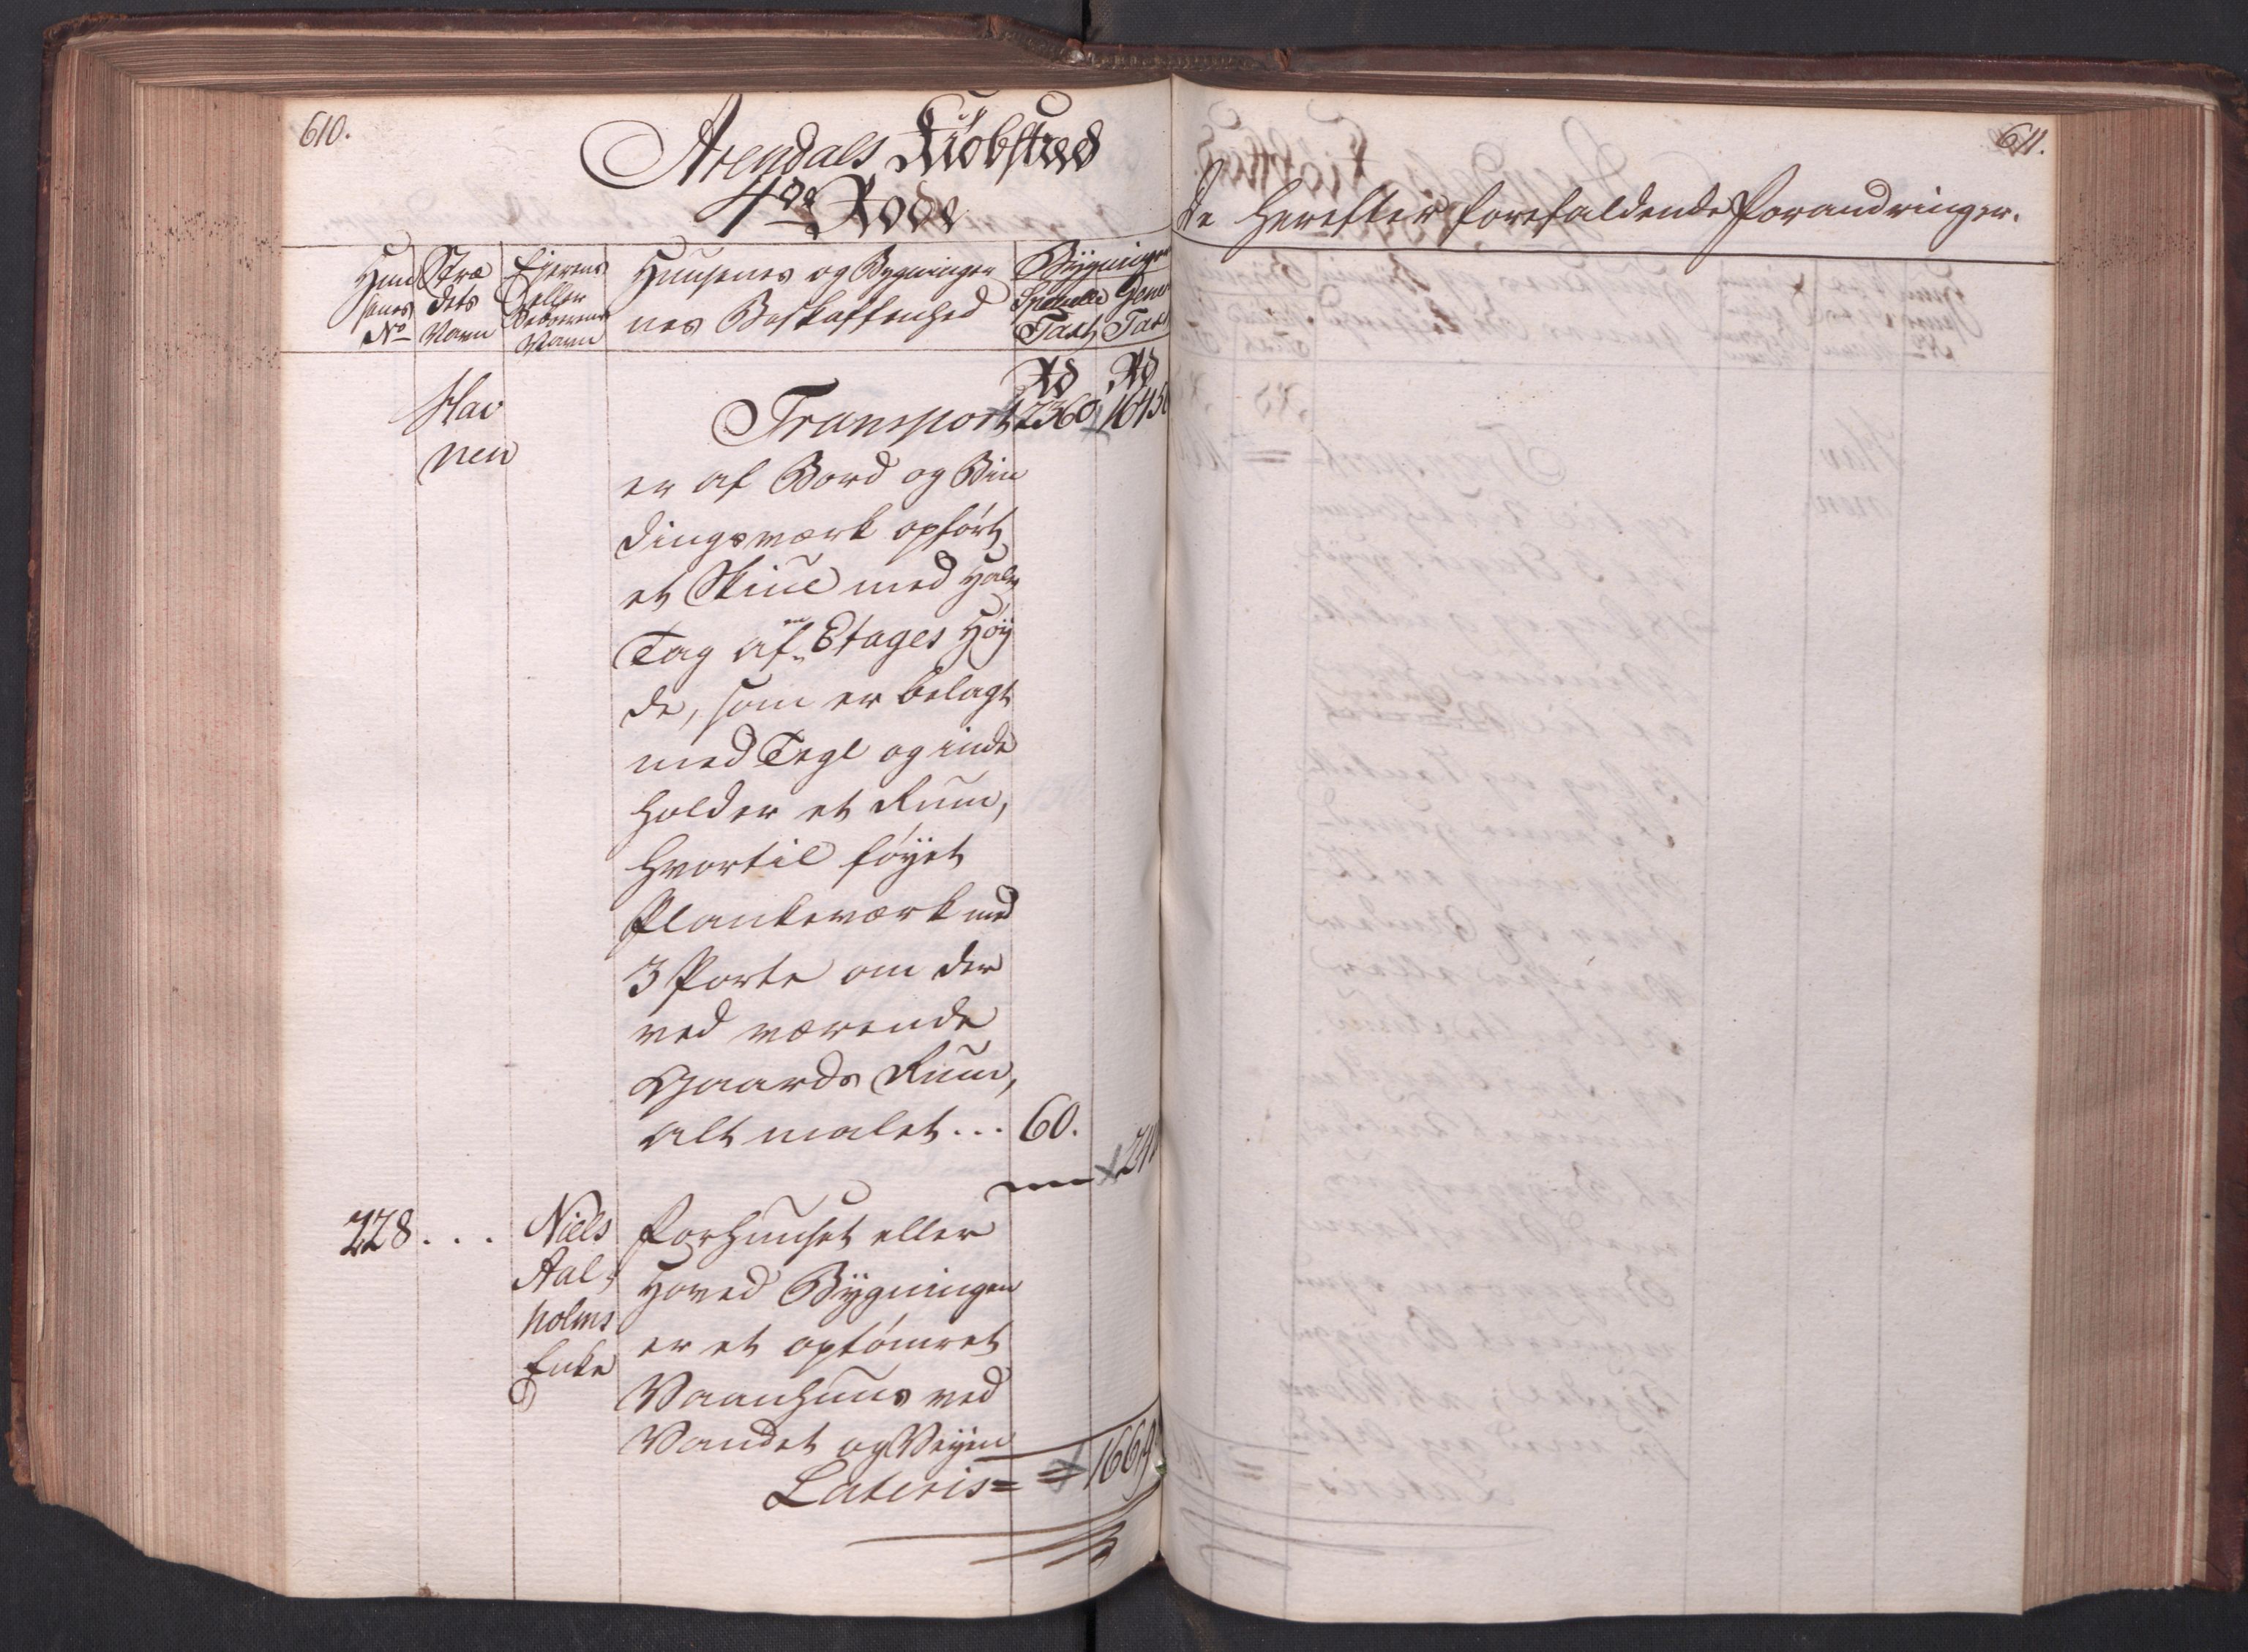 610.
Arendals Kiöbsted
4de Rode
Huu
senes
No
Stræ
dets
Navn
Ejerens
eller
Beboerens
Navn
Huusenes og Bygninger
nes Beskaffenhed
Bÿgninger
Speciele
Taxt
Gener
Taxt
Rd Rd
Hav
nen
Transport 2360 1645
er af Bord og Bin
dingsværk opført
et Skiul med halv
Tag af en Etages Høÿ
de, som er belagt
med Tegl og inde
holder et Rum,
hvortil føÿet
Plankeværk med
3 Porte om der
ved værende
Gaards Rum,
alt malet... 60.
228... Niels
Aal,
holms
Enke
Forhuuset eller
Hoved Bÿgningen
er et optömret
Vaanhuus ved
Vandet og Veÿen
Lateris = = 1669
611.
de herefter forefaldende Forandringer.